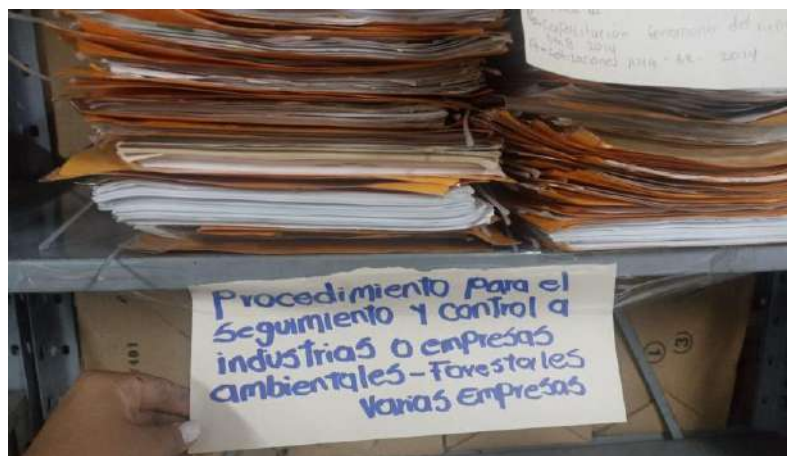 Capacitación
2014
2014
Procedimiento para el
Seguimiento y Control a
industrias o empresas
ambientales - Forestales
Varias Empresas